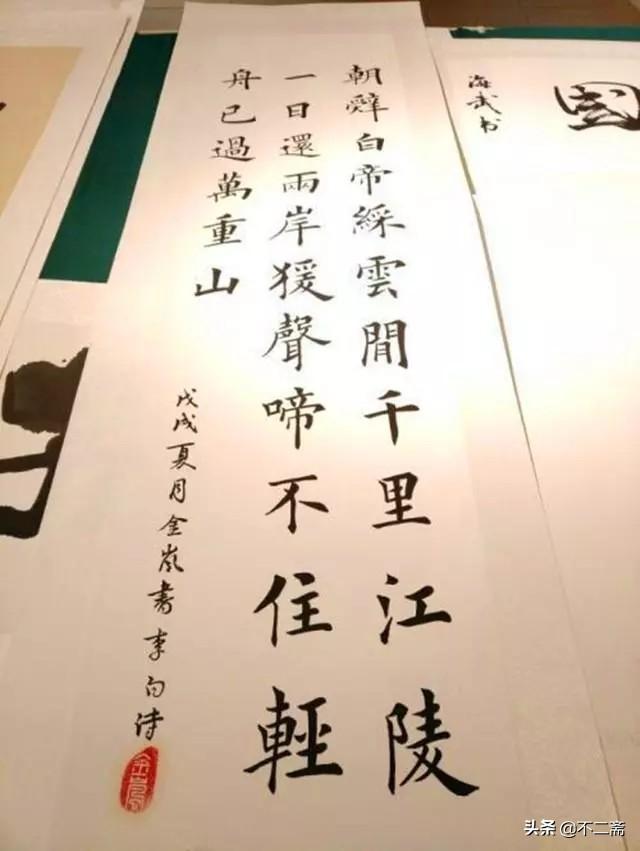 國
海武书
朝辤白帝綵雲閒千里江陵
一日還兩岸猨聲啼不住輕
舟已過萬重山
戊戌夏月金嵐書李白诗
头条 @不二斋